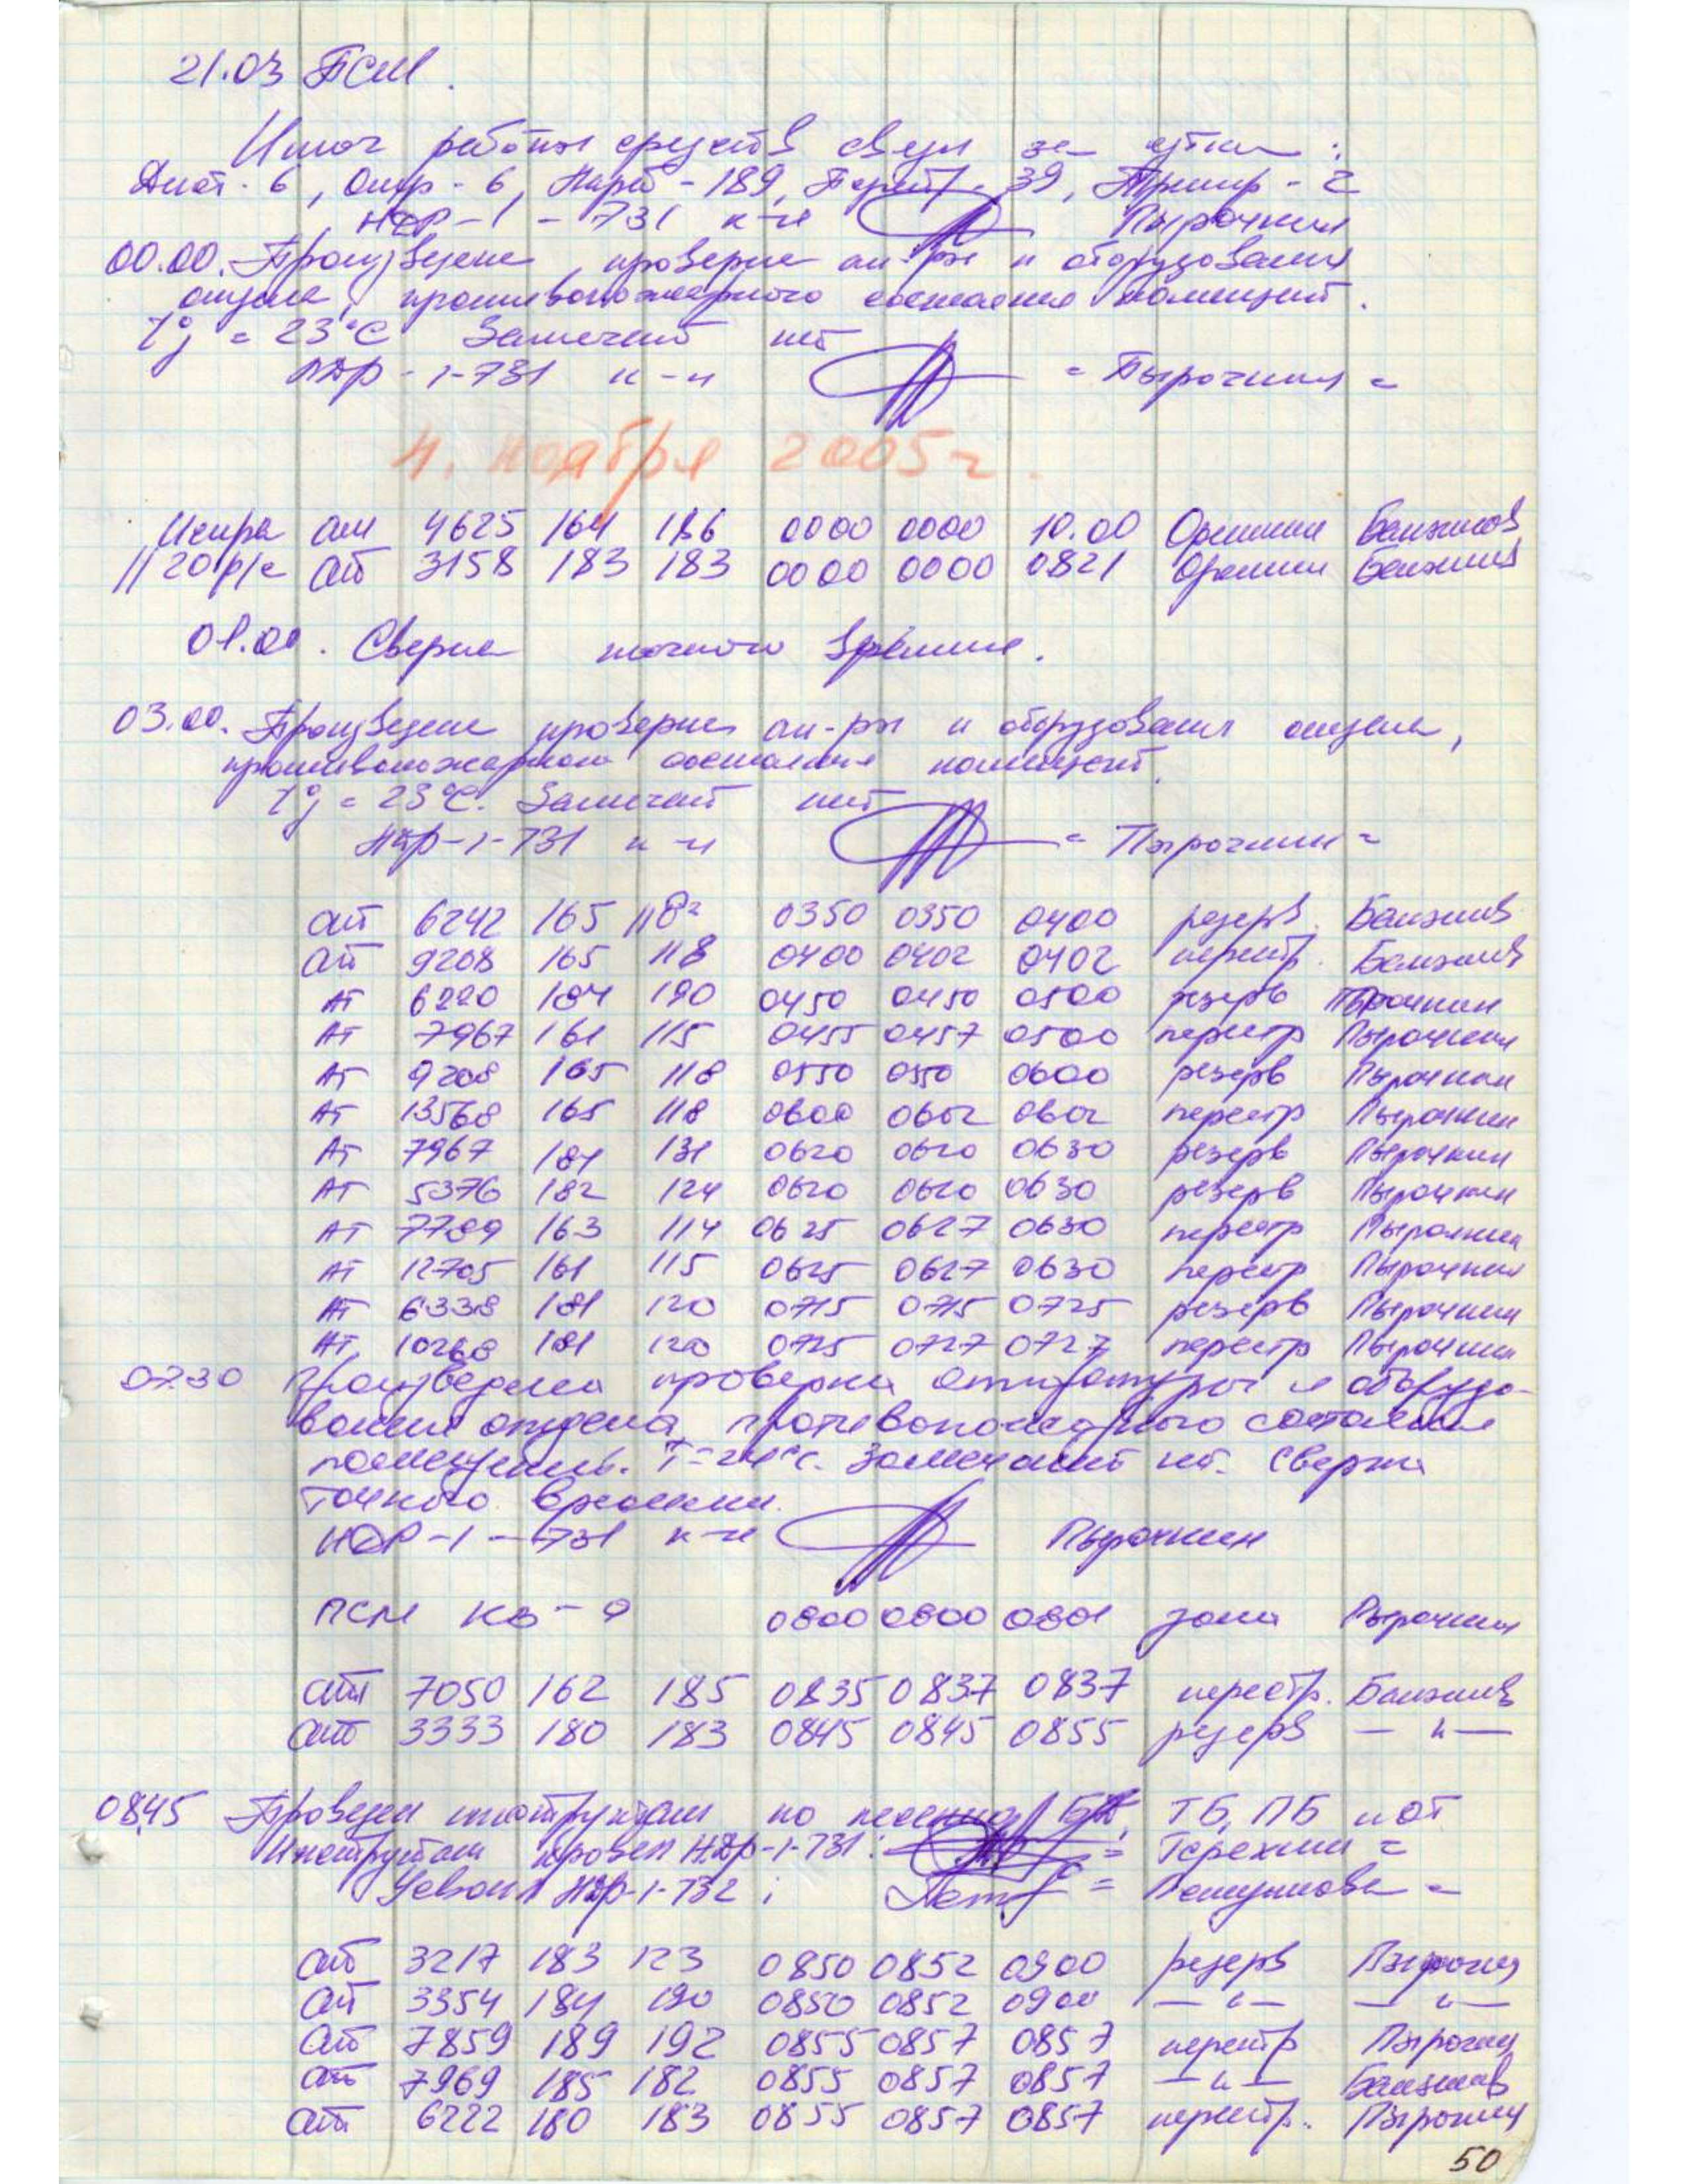 21.03 ПСМ.
Итог работы средств связи за сутки:
6, 6, - 189, 39, - 2
НДР-1-731 к-н Пырочкин
00.00. Произведена проверка ап-ры и оборудования
отдела, противопожарного состояния помещений.
t°= 23°C Замечаний нет
НДР-1-731 к-н = Пырочкин =
4. ноября 2005г.
Искра ат 4625 164 186 0000 0000 10.00
1120р/с ат 3158 183 183 0000 0000 0821
01.00. Сверка точного времени.
03.00. Произведена проверка ап-ры и оборудования отдела,
противопожарного состояния помещений.
t°= 23°C. Замечаний нет
НДР-1-731 к-н = Пырочкин =
ат 6242 165 118² 0350 0350 0400 резерв.
ат 9208 165 118 0400 0402 0402 перестр.
АТ 6220 184 190 0450 0450 0500 резерв Пырочкин
АТ 7967 161 115 0455 0457 0500 перестр Пырочкин
АТ 9208 165 118 0550 0550 0600 резерв Пырочкин
АТ 13568 165 118 0600 0602 0602 перестр Пырочкин
АТ 7967 181 131 0620 0620 0630 резерв Пырочкин
АТ 5376 182 124 0620 0620 0630 резерв Пырочкин
АТ 7789 163 114 0625 0627 0630 перестр Пырочкин
АТ 12705 161 115 0625 0627 0630 перестр Пырочкин
АТ 6338 181 120 0715 0715 0725 резерв Пырочкин
АТ 10268 181 120 0725 0727 0727 перестр Пырочкин
0730 Произведена проверка аппаратуры и оборудо-
вания отдела, противопожарного состояния
помещений. T=24°C. Замечаний нет. Сверка
точного времени.
НДР-1-731 к-н Пырочкин
ПСМ КВ-9 0800 0800 0801 зона Пырочкин
ат 7050 162 185 0835 0837 0837 перестр.
ат 3333 180 183 0845 0845 0855 резерв — " —
0845 Проведен инструктаж по ТБ, ПБ и ОТ
Инструктаж провел НДР-1-731: = Терехин =
Усвоил НДР-1-732;
ат 3217 183 123 0850 0852 0900 резерв Пырочкин
ат 3354 184 190 0850 0852 0900 — " — — " —
ат 7859 189 192 0855 0857 0857 перестр Пырочкин
ат 7969 185 182 0855 0857 0857 — " —
ат 6222 180 183 0855 0857 0857 перестр. Пырочкин
50